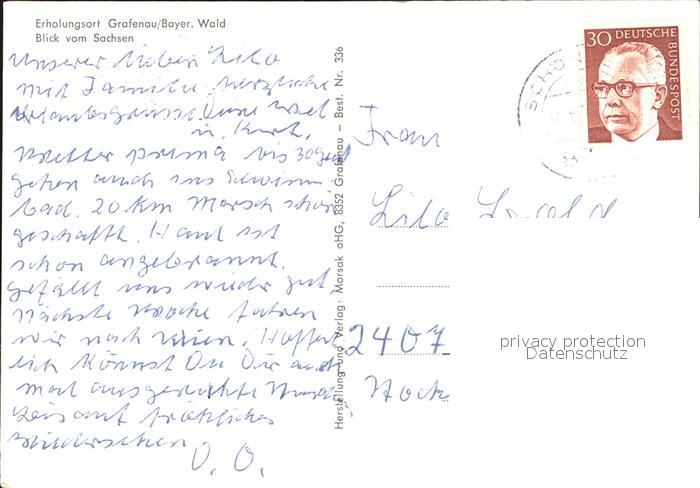 Erholungsort Grafenau/Bayer. Wald
Blick vom Sachsen
Unserer lieben Lilo
mit Familie herzliche
Urlaubsgrüsse Deine
u. Kurt.
Wetter prima bis 30 grad
gehen auch ins Schwimm
bad. 20 Km Marsch schon
geschafft. Haut ist
schon angebrannt.
Gefällt uns wieder gut
nächste Woche fahren
wir nach Wien. Hoffent
lich könnst Du Dir auch
mal ausgeruhte
Leis auf fröhliches
Wiedersehen
O. O.
Herstellung und Verlag: Morsak oHG, 8352 Grafenau – Best. Nr. 336
30 DEUTSCHE
BUNDESPOST
SCHÖ
Frau
Lilo
2407
privacy protection
Datenschutz